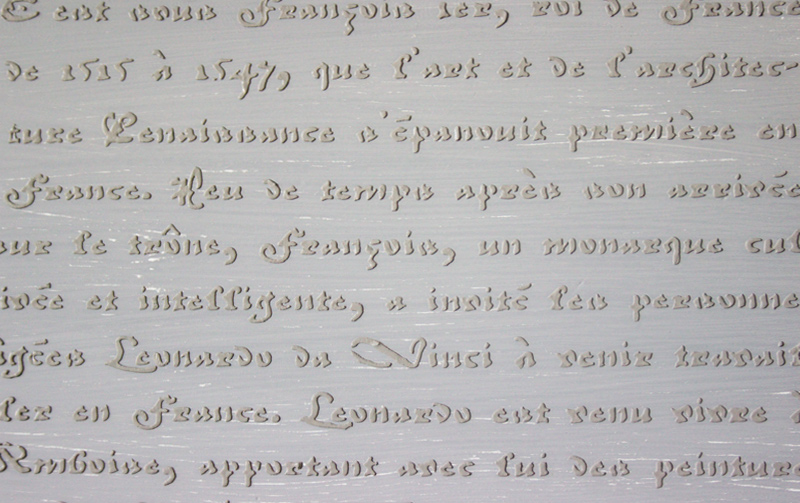 C'est sous François 1er, roi de France
de 1515 à 1547, que l'art et de l'architec-
ture Renaissance s'épanouit première en
France. Peu de temps après son arrivée
sur le trône, François, un monarque cul
ivée et intelligente, a invité les personne
âgées Leonardo da Vinci à venir travail
ler en France. Leonardo est venu vivre à
Amboise, apportant avec lui des peinture